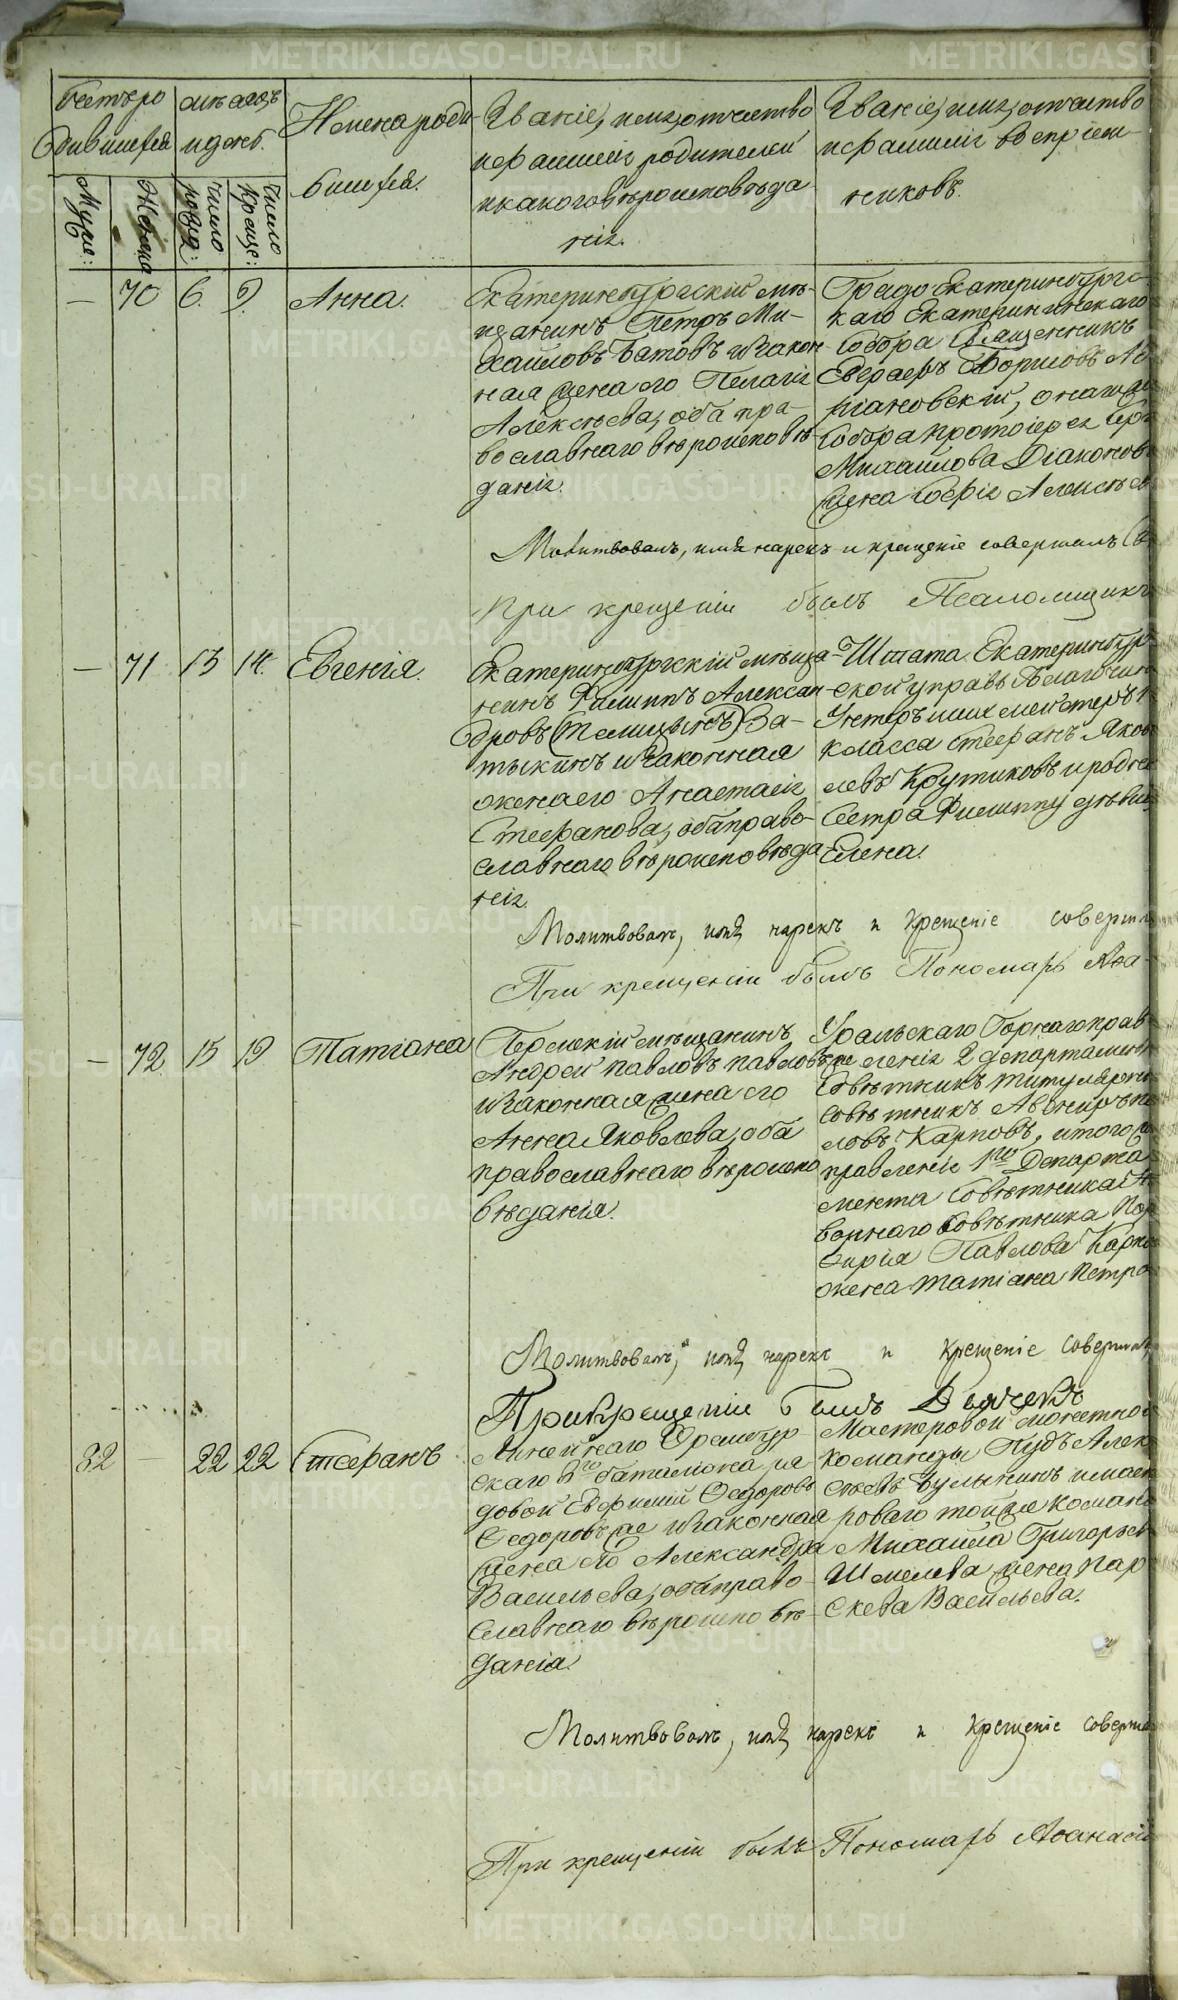 Счетъ ро
дившихся
Муже:
Женска
мѣсяцъ
и день.
число рожд:
число креще:
Имена роди
вшихся.
Званіе, имя, отчество
и фамилія родителей
и какого вѣроисповѣда
нія.
Званіе, имя, отчество
и фамилія воспріем-
никовъ.
— 70 6. 9. Анна.
Екатеринбургскій мѣ-
щанинъ Петръ Ми-
хаиловъ Батовъ и закон
ная жена его Пелагія
Алексѣева, оба пра-
вославнаго вѣроисповѣ-
данія.
Градо Екатеринбургс-
каго Екатерининскаго
Собора Священникъ
Борисовъ
онаго же
Собора протоіерея
Михайлова Діаконов
жена Софія Алексѣев
Молитвовалъ, имя нарекъ и крещеніе совершилъ
При крещеніи былъ Псаломщикъ
— 71 13 14. Евгенія.
Екатеринбургскій мѣща-
нинъ Филипъ Алексан-
дровъ (Телицынъ) За-
тыкинъ и законная
жена его Анастасія
Стефанова, оба право-
славнаго вѣроисповѣда
нія.
Штата Екатеринбур-
ской управы благочин
Унтеръ
класса Стефанъ Яков
левъ Крутиковъ и родна
Сестра Филиппу дѣвиц
Елена.
Молитвовалъ, имя нарекъ и Крещеніе соверши
При крещеніи былъ Пономарь Афа-
— 72. 15 19 Татіана
Пермскій мѣщанинъ
Андрей Павловъ Павловъ же
и законная жена его
Анна Яковлева, оба
православнаго вѣроиспо
вѣданія.
Уральскаго Горнаго прав-
ленія 2 департамента
Совѣтникъ титулярный
совѣтникъ Авениръ Па
ловъ Карповъ, и того же
правленія 1го Департа
мента Совѣтника На
ворнаго Совѣтника Пор
фирія Павлова Карпо
жена Татіана Петро
Молитвовалъ, имя нарекъ и Крещеніе совершилъ
При Крещеніи былъ Дьячекъ
32 — 22 22 Стефанъ
Линейнаго Оренбур-
скаго баталіона ря
довой Евфимій Федоровъ
Федоровъ же и законная
жена его Александра
Васильева, оба право-
славнаго вѣроисповѣ-
данія.
Мастеровой монетной
команды Нудъ Алек
сѣевъ и масте
роваго той же команд
Михаила Григорьев
Шмелева жена Пар
скева Васильева.
Молитвовалъ, имя нарекъ и Крещеніе соверши
При крещеніи былъ Пономарь Афанасій